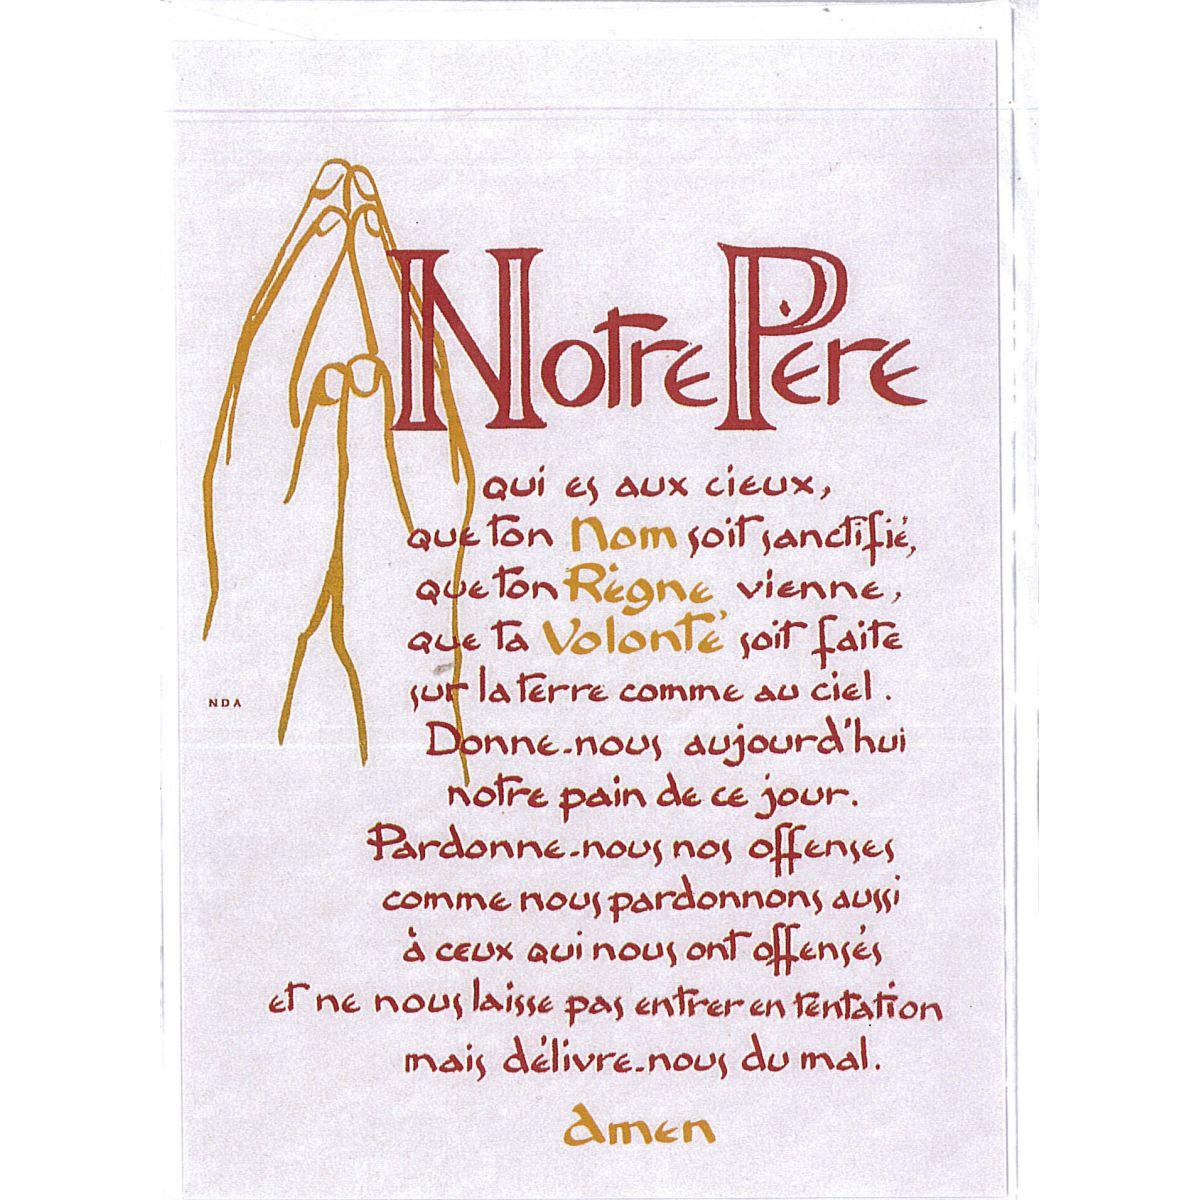 Notre Père
qui es aux cieux,
que ton Nom soit sanctifié,
que ton Règne vienne,
que ta Volonté soit faite
sur la terre comme au ciel.
NDA
Donne-nous aujourd'hui
notre pain de ce jour.
Pardonne-nous nos offenses
comme nous pardonnons aussi
à ceux qui nous ont offensés
et ne nous laisse pas entrer en tentation
mais délivre-nous du mal.
Amen